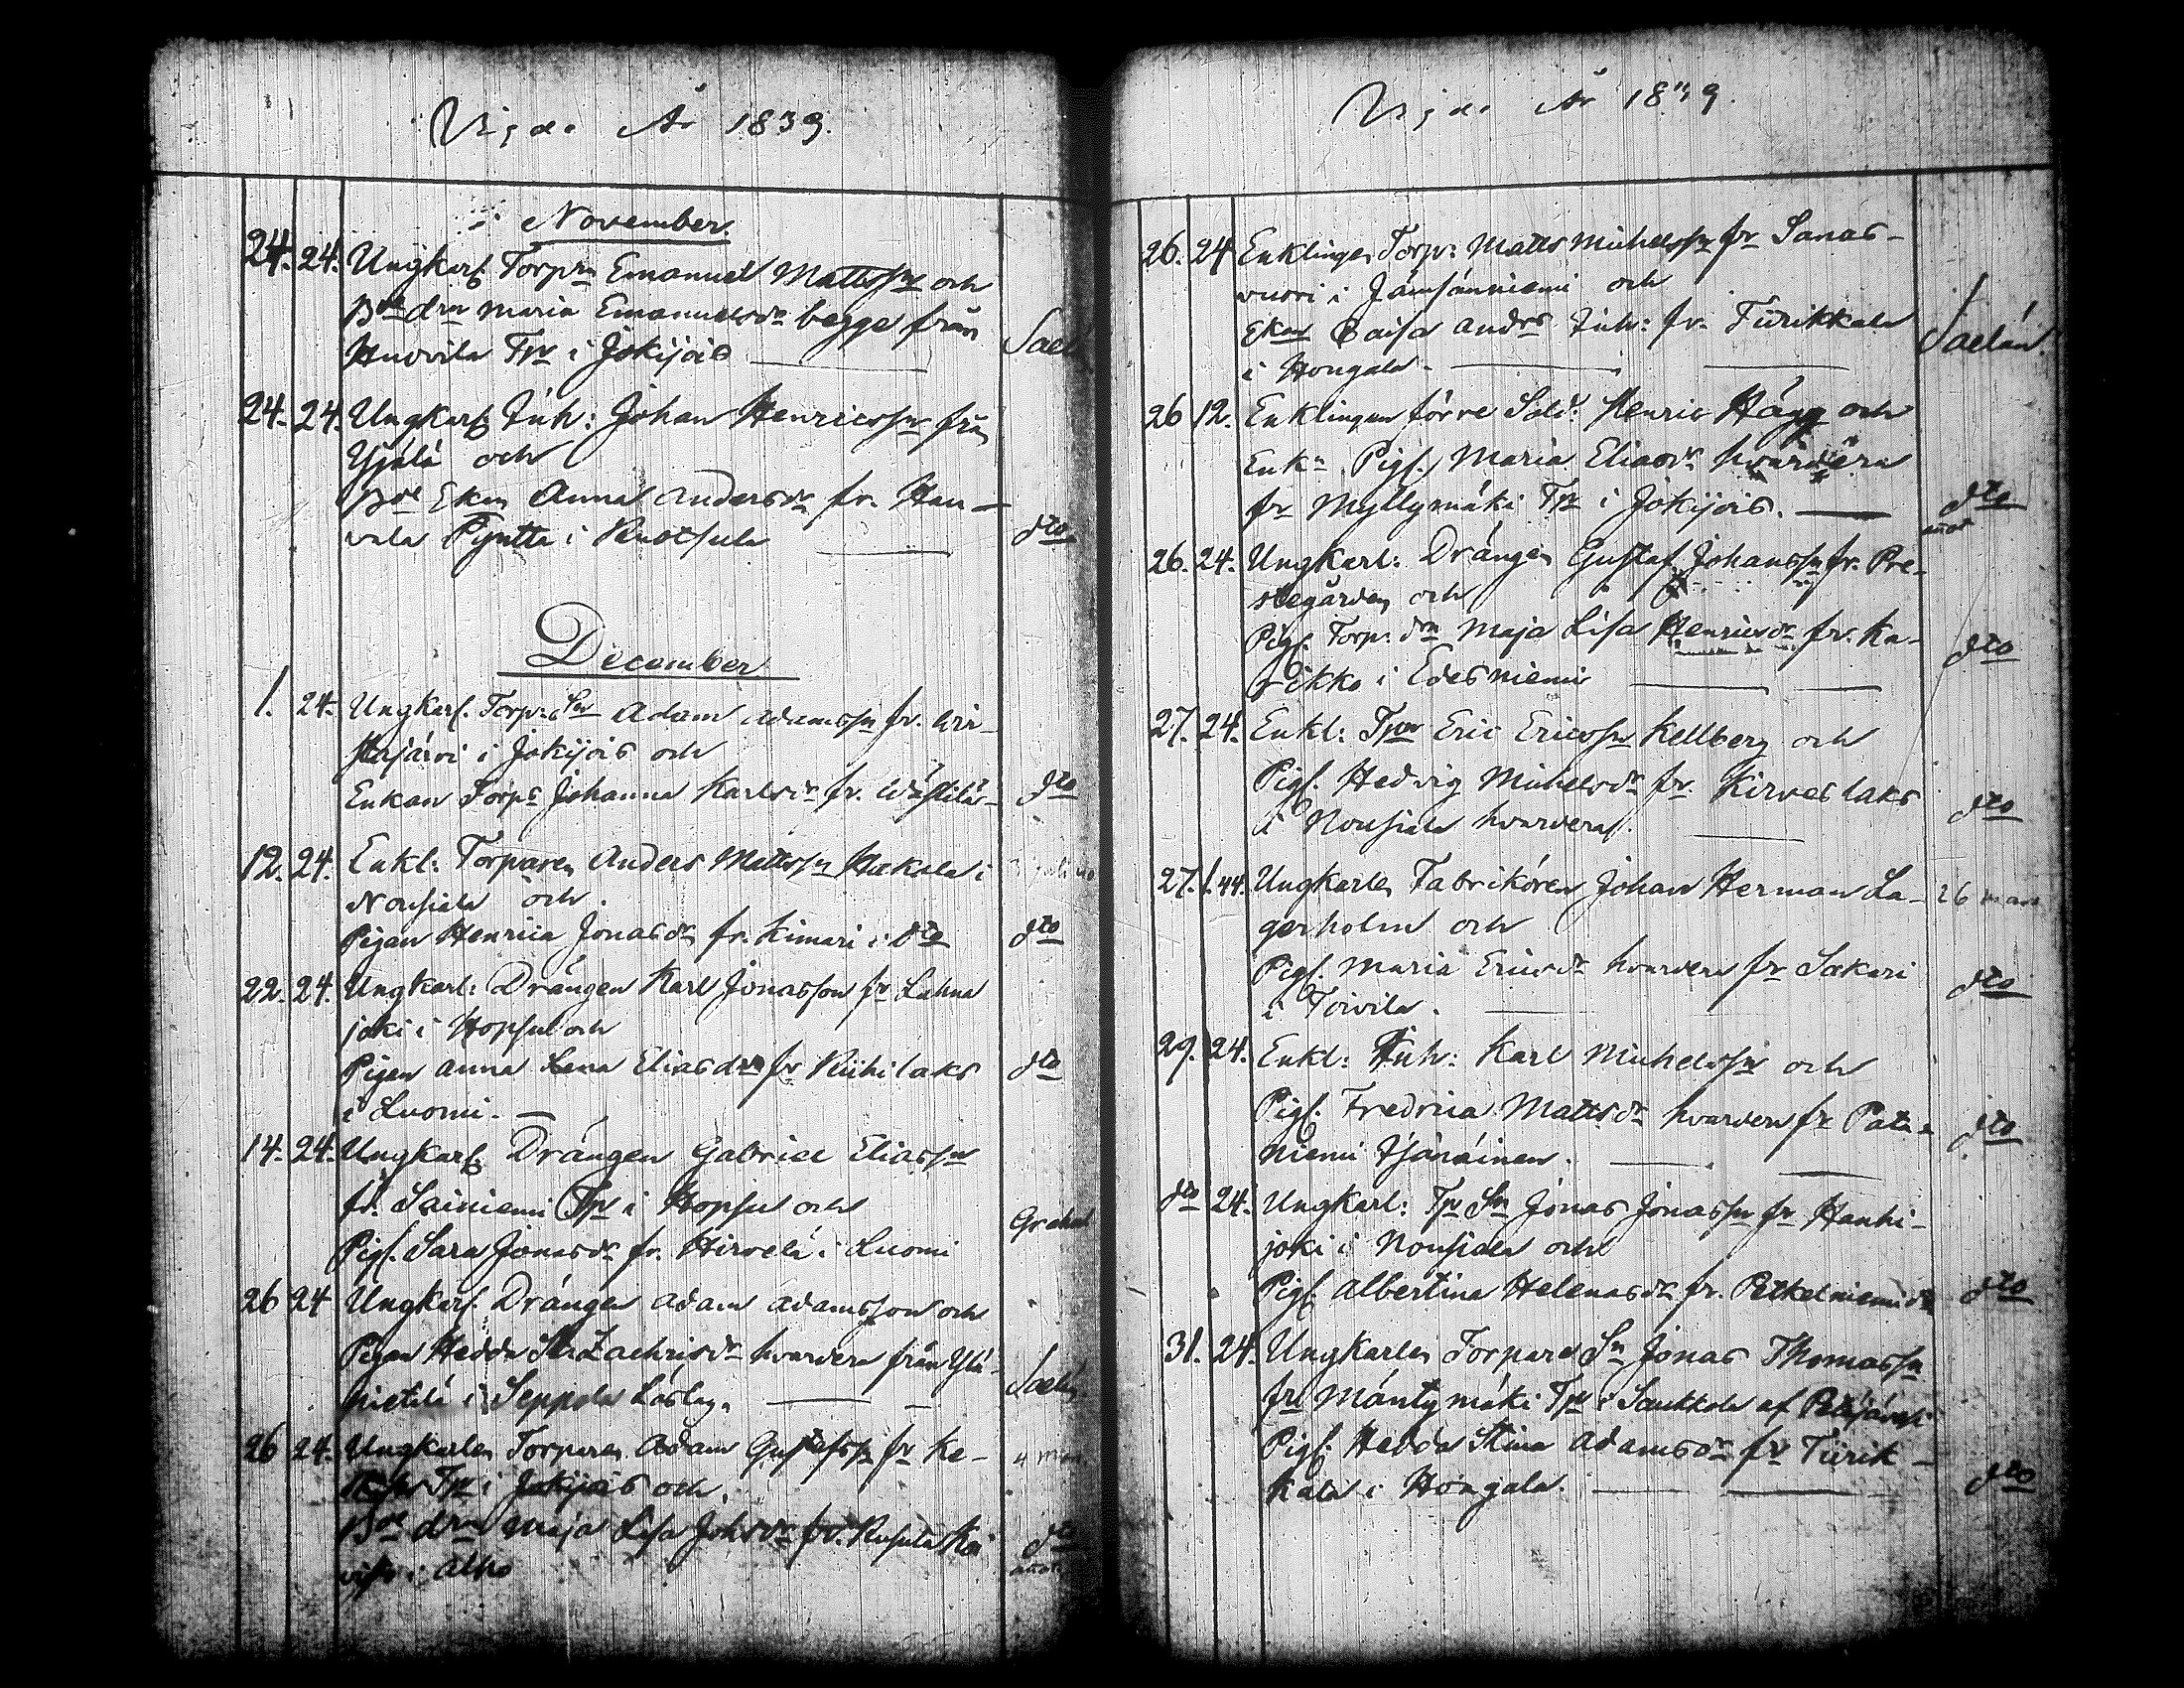 Vigde År 1839.
November.
24. 24. Ungkarl. Torprn Emanuel Mattsson och
Bde drn Maria Emanuelsdr begge från
Huovila Tp i Jokijois Saelán
24. 24. Ungkarl. Inh: Johan Henricsson från
Yjälä och
Bde Ekan Anna Andersdr fr. Hau-
vala Pyntta i Ruotsula dto
December
1. 24. Ungkarl. Torp: Sn Adam Adamsson fr. Wir-
stajärvi i Jokijois och
Enkan Torps Johanna Karlsdr fr. dto
12. 24. Enkl: Torparen Anders Mattsson Hakala i
Nousiala och
Pigan Henrica Jonasdr fr. Kimari i dto dto
22. 24. Ungkarl: Drängen Karl Jonasson fr Lahna
joki i Hopsu och
Pigan Anna Lena Eliasdr fr Riihilaks dto
i Luomi.
14. 24. Ungkarl. Drängen Gabriel Eliasson
fr. Sainiemi Tp i Hopsu och
Pigl. Sara Jonasdr fr. Hirvelä i Luomi
26 24 Ungkarl. Drängen Adam Adamsson och
Pigan Hedda St. Zachrisdr hvardera från Ylä-
nietilä i Seppola Låslag. Saelán
26 24. Ungkarlen Torparen Adam Gustafsson fr Ke-
Tp i Jokijois och
Bde drn Maja Lisa Johsdr fr. Rusula Koi
visto i Alho dto
Vigde År 1839.
26. 24 Enklingen Torp: Matts Michelsson fr Sanas-
vuori i Jämsänniemi och
Ekan Caisa Andrs Inh: fr. Tiirikkala Saelán.
i Hongala.
26 12. Enklingen förre Sold: Henric Hägg och
Enkn Pigl. Maria Eliasdr hvardera
fr Myllymäki Tp i Jokijois. dto
26. 24. Ungkarl: Drängen Gustaf Johansson fr. Pre-
stegården och
Pigl. Torp: drn Maja Lisa Henricsdr fr. Ka- dto
rikko i Edesniemi
27. 24. Enkl: Tpr Eric Ericsson Kellberg och
Pigl. Hedvig Michelsdr fr. Kirveslaks
i Nousiala hvardera. dto
27. 1.44. Ungkarlen Fabrikören Johan Herman La- 26 mars
gerholm och
Pigl. Maria Ericsdr hvardera fr Sakari
i Toivila. dto
29. 24. Enkl: Inh: Karl Michelsson och
Pigl. Fredrica Mattsdr hvardera fr Pata-
niemi dto
dto 24. Ungkarl: Tp Sn Jonas Jonasson fr Hanhi-
joki i Nousiala och
Pigl. Albertina Helenasdr fr. Petkelniemi dto dto
31. 24. Ungkarlen Torpare Sn Jonas Thomasson
fr Mäntymäki Tp i Saukkola af Petäjävesi
Pigl. Hedda Stina Adamsdr fr Tiirik-
kala i Hongala. dto